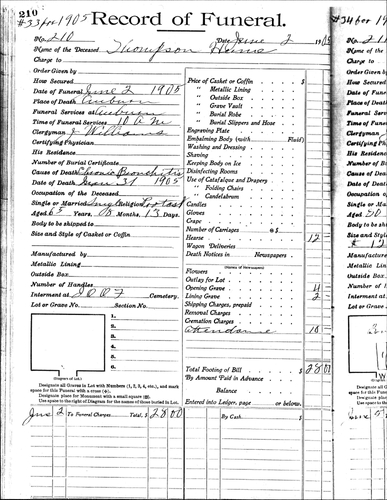 210
#33 for 1905
Record of Funeral.
No. 210 Date June 2 1905
Name of the Deceased Thompson
Charge to
Order Given by
How Secured
Date of Funeral June 2 1905
Place of Death Auburn
Funeral Services at Auburn
Time of Funeral Services 10 A M
Clergyman J Williams
Certifying Physician
His Residence
Number of Burial Certificate
Cause of Death Chronic Bronchitis
Date of Death 1905
Occupation of the Deceased
Single or Married Sing Religion Protast
Aged 65 Years, Months, 13 Days
Body to be shipped to
Size and Style of Casket or Coffin
Manufactured by
Metallic Lining
Outside Box
Number of Handles
Interment at I O O F Cemetery.
Lot or Grave No. Section No.
1.
2.
3.
4.
5.
6.
(Diagram of Lot.)
Designate all Graves in Lot with Numbers (1, 2, 3, 4, etc.), and mark
space for this Funeral with a cross (+).
Designate place for Monument with a small square
Use space to the right of Diagram for the names of those buried in Lot.
Price of Casket or Coffin $
" Metallic Lining
" Outside Box
" Grave Vault
" Burial Robe
" Burial Slippers and Hose
Engraving Plate
Embalming Body (with Fluid)
Washing and Dressing
Shaving
Keeping Body on Ice
Disinfecting Rooms
Use of Catafalque and Drapery
" Folding Chairs
" Candelabrum
Candles
Gloves
Crape
Number of Carriages @ $
Hearse 12
Wagon Deliveries
Death Notices in Newspapers
(Names of Newspapers)
Flowers
Outlay for Lot
Opening Grave 4
Lining Grave 2
Shipping Charges, prepaid
Removal Charges
Cremation Charges
Atendance 10
Total Footing of Bill $ 28 00
By Amount Paid in Advance
Balance
Entered into Ledger, page or below.
June 2 To Funeral Charges Total, $ 28 00 By Cash $
#34 for 190
No. 211
Name of the
Charge to
Order Giv
How Secur
Date of Fu
Place of De
Funeral Se
Time of Fu
Clergyman
Certifying
His Resid
Number of
Cause of D
Date of De
Occupation
Single or M
Aged
Body to be
Size and St
Manufactu
Metallic L
Outside Bo
Number of
Interment
Lot or Grav